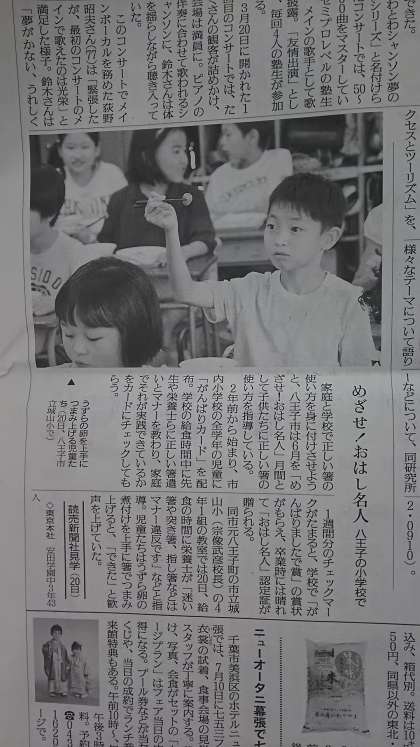 できた。
わとわシャンソン夢の
シリーズ」と名付けら
コンサートでは、50～
60曲をマスターしてい
セミプロレベルの塾生
メインの歌手として歌
披露。「友情出演」とし
毎回4人の塾生が参加
3月20日に開かれた1
回目のコンサートでは、た
さんの観客が詰めかけ、
会場は満員に。ピアノの
伴奏に合わせて歌われるシ
ャンソンに、鈴木さんは体
を揺らしながら聴き入って
いた。
このコンサートでメイ
ンボーカルを務めた荻野
昭夫さん(77)は「緊張した
が、最初のコンサートのメ
インで歌えたのは光栄」と
満足した様子。鈴木さんは
「夢がかない、うれしく
クセスとツーリズム」を、
「様々なテーマについて語り
などについて、同研究所
2・0910)。
めざせ！おはし名人
八王子の小学校で
家庭と学校で正しい箸の
使い方を身に付けさせよう
と、八王子市は6月を「め
ざせ！おはし名人」月間と
して子供たちに正しい箸の
使い方を指導している。
2年前から始まり、市
内小学校の全学年の児童に
「がんばりカード」を配
布。学校の給食時間中に先
生や栄養士らに正しい箸遣
いとマナーを教わり、家庭
でそれが実践できているか
をカードにチェックしても
らう。
1週間分のチェックマー
クがたまると、学校で「が
んばりましたで賞」の賞状
がもらえ、卒業時には晴れ
て「おはし名人」認定証が
贈られる。
同市元八王子町の市立城
山小(宗俊武彦校長)の4
年1組の教室では20日、給
食の時間に栄養士が「迷い
箸や突き箸、指し箸などは
マナー違反です」などと指
導。児童たちはうずら卵の
煮付けを上手に箸でつまみ
上げると、「できた」と歓
声を上げていた。
▲
うずらの卵を上手に
つまみ上げる児童た
ち(20日、八王子市
立城山小で)
読売新聞社見学(20日)
◇東京本社 安田学園中3年43
人
ニューオータニ幕張で七
千葉市美浜区のホテルニ
張では、7月10日に七五三フ
衣裳の試着、食事会場の見
スタッフが丁寧に案内する。
け、写真、会食がセットの
ージプラン」はフェア当日の
得になる。プール券などが当
くじや、当日の成約でランチ
来館特典もある。午前10時～
午後
料。予約
☎043
1026
ージで。
込み、箱代別)。送料は10
50円、同県以外の東北